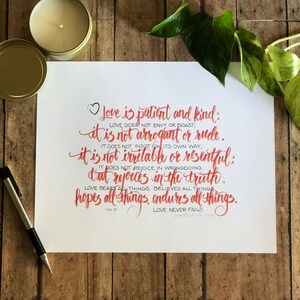 Love is patient and kind;
LOVE DOES NOT ENVY OR BOAST;
it is not arrogant or rude.
IT DOES NOT INSIST ON ITS OWN WAY;
it is not irritable or resentful;
IT DOES NOT REJOICE IN WRONGDOING,
but rejoices in the truth.
LOVE BEARS ALL THINGS, BELIEVES ALL THINGS,
hopes all things, endures all things.
LOVE NEVER FAILS.